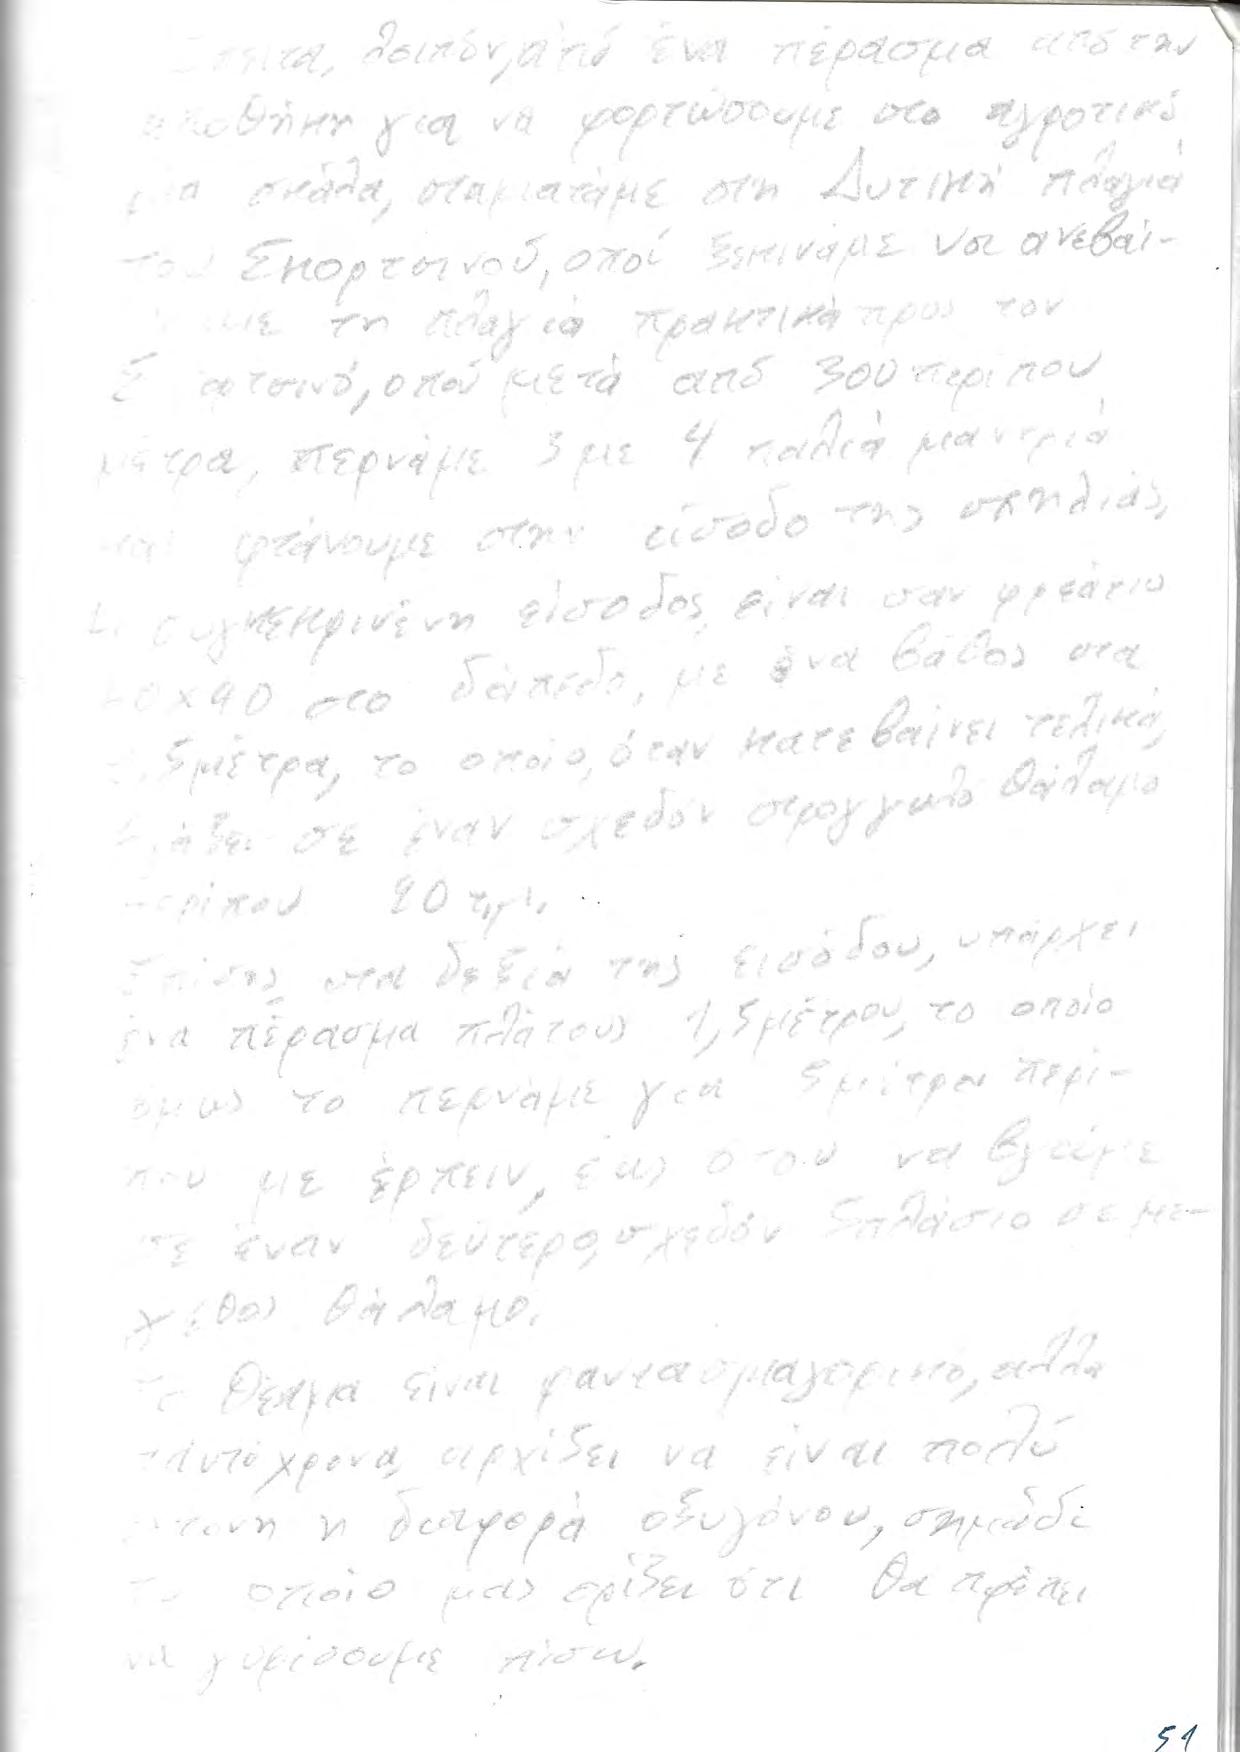 Έπειτα, λοιπόν, από ένα πέρασμα από την
αποθήκη για να φορτώσουμε στο αγροτικό
μια σκάλα, σταματάμε στη Δυτική πλαγιά
του Σκορτσινού, οπού ξεκινάμε να ανεβαί-
με τη πλαγιά πρακτικά προς τον
Σκορτσινό, οπού μετά από 300 περίπου
μέτρα, περνάμε 3 με 4 παλιά μαντριά
και φτάνουμε στην είσοδο της σπηλιάς,
συγκεκρινένη είσοδος, είναι σαν φρεάτιο
στο δάπεδο, με ένα βάθος στα
5 μέτρα, το οποίο, όταν κατεβαίνει τελικά,
σε έναν σχεδόν στρογγυλό θάλαμο
περίπου 20 τ.μ.
Επίσης στα δεξιά της εισόδου, υπάρχει
ένα πέρασμα πλάτους 1,5 μέτρου, το οποίο
όμως το περνάμε για 5 μέτρα περί-
που με έρπειν, έως ότου να βγούμε
σε έναν δεύτερο, σχεδόν 5πλάσιο σε με-
γεθος θάλαμο.
Το θέαμα είναι φαντασμαγορικό, αλλά
ταυτόχρονα, αρχίζει να είναι πολύ
έντονη η διαφορά οξυγόνου, σημάδι
το οποίο μας ορίζει ότι θα πρέπει
να γυρίσουμε πίσω.
51